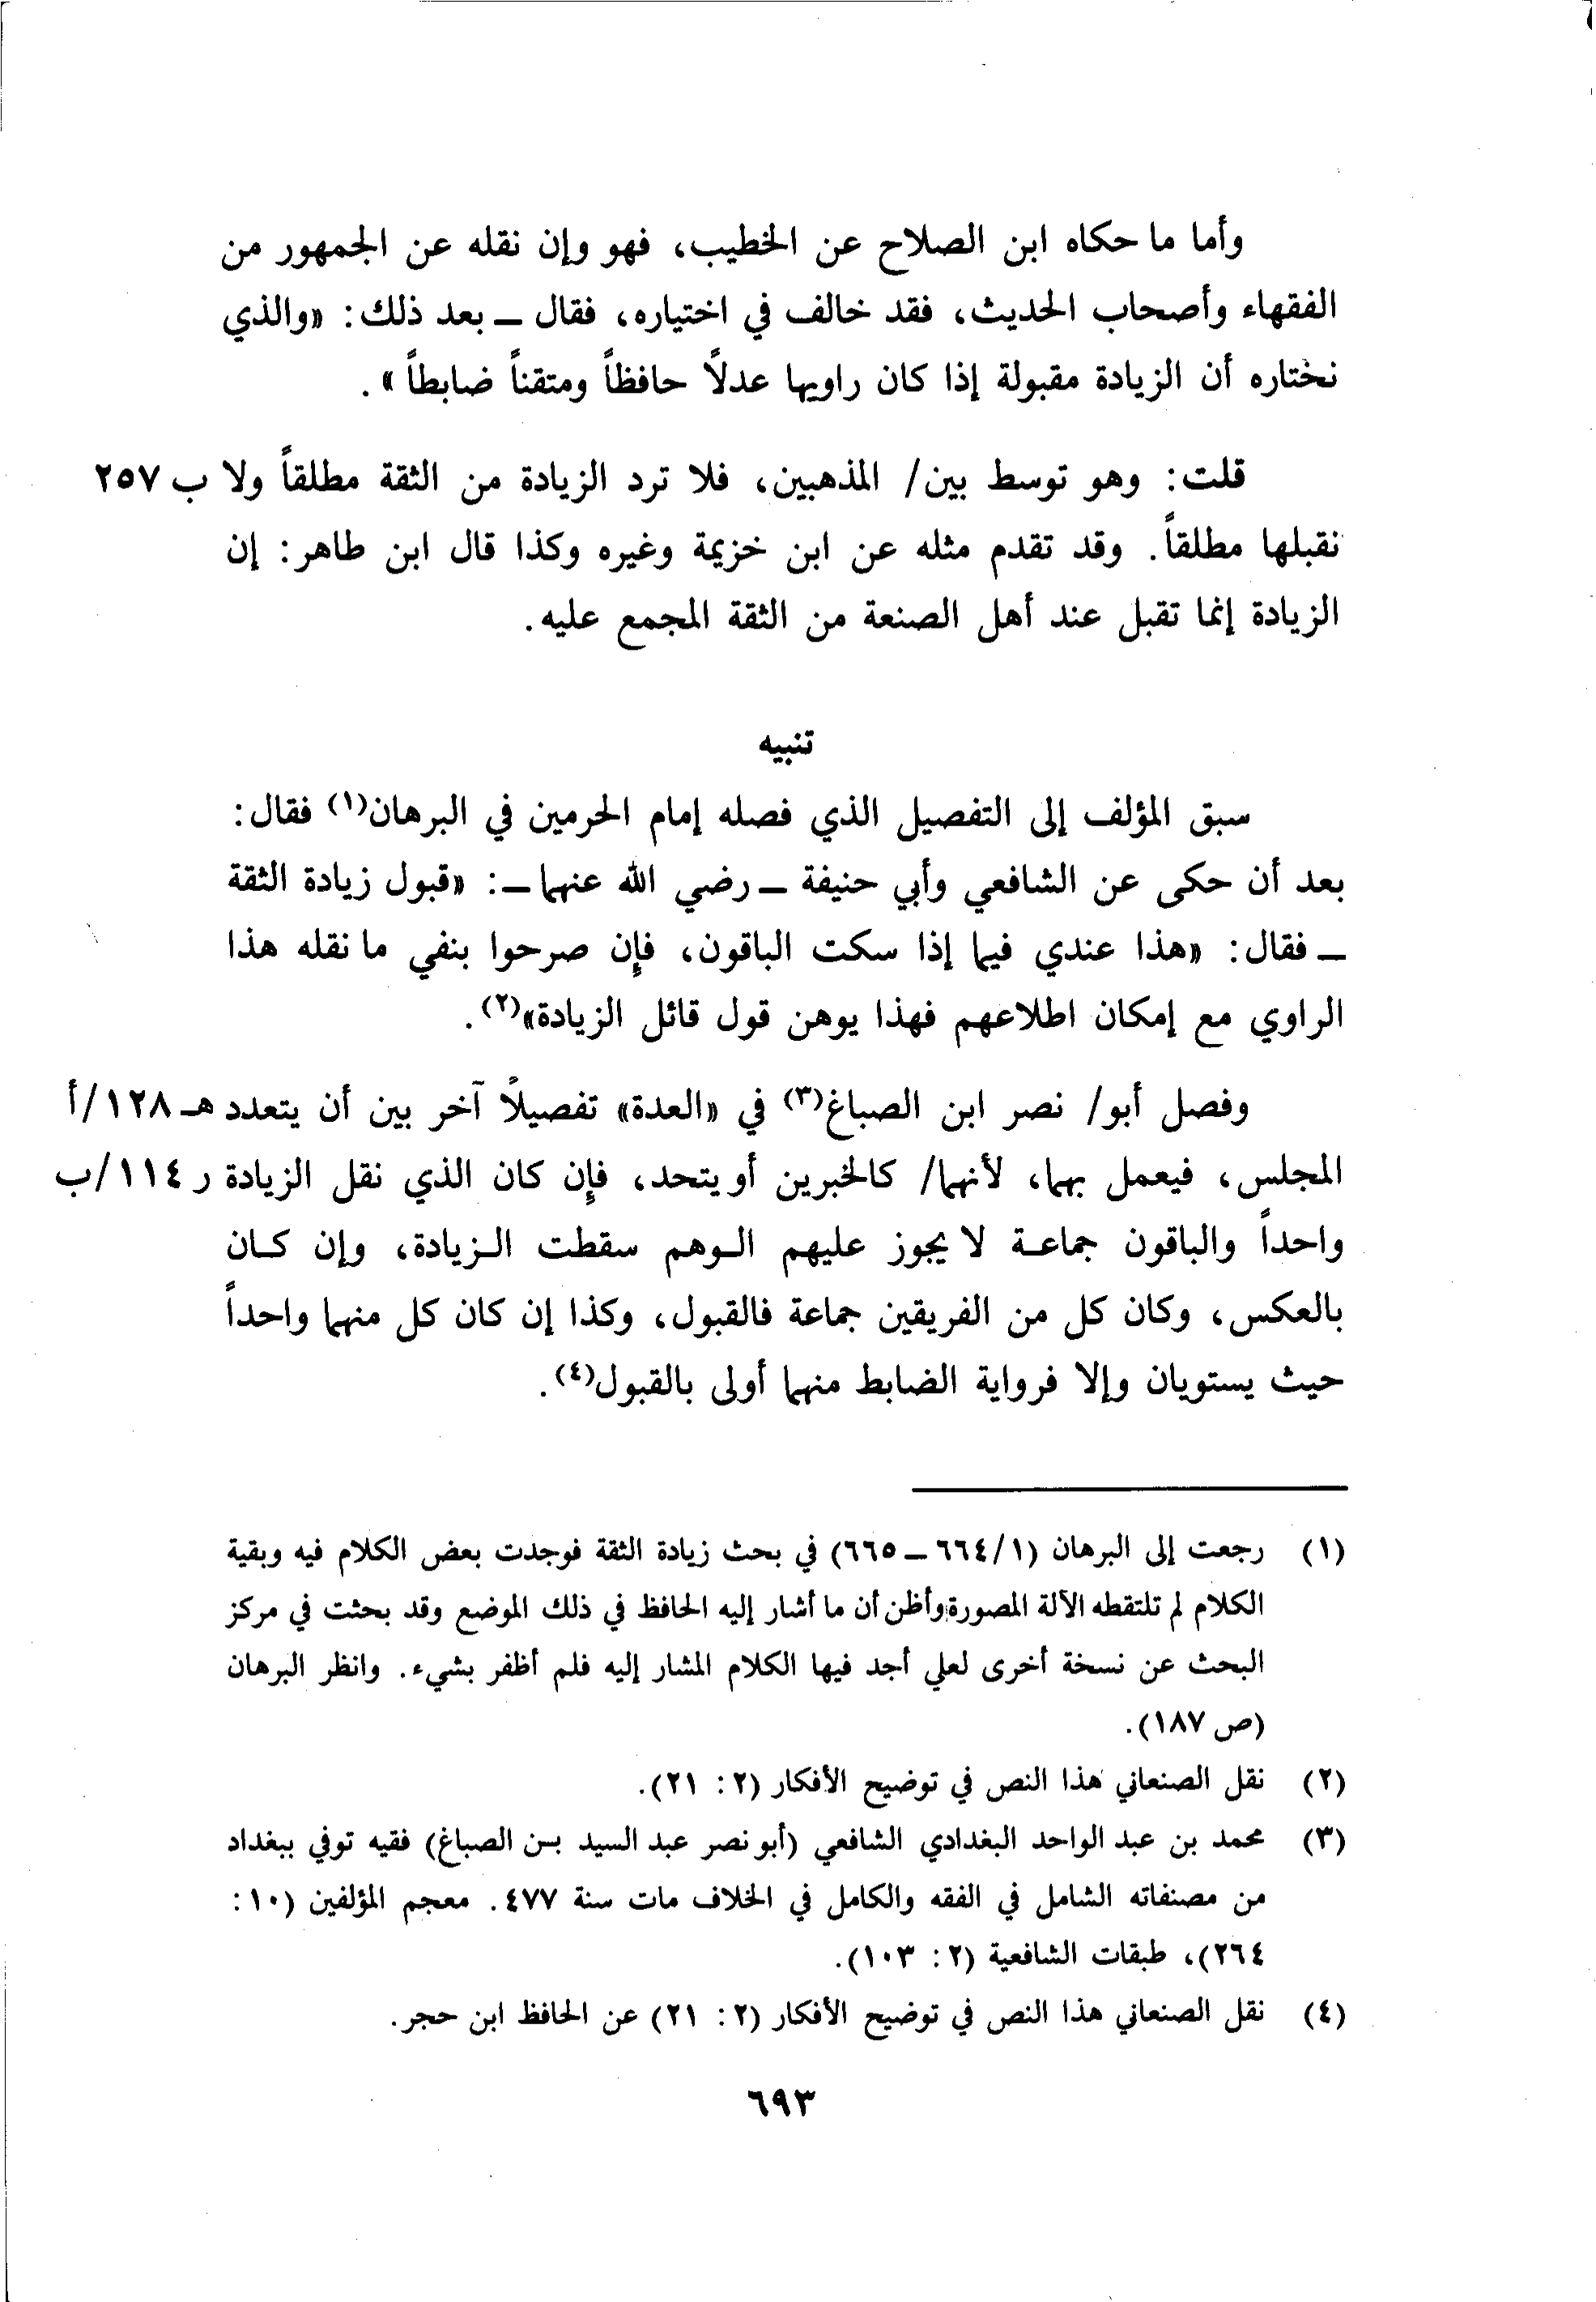 وأما ما حكاه ابن الصلاح عن الخطيب، فهو وإن نقله عن الجمهور من
الفقهاء وأصحاب الحديث، فقد خالف في اختياره، فقال ــ بعد ذلك: «والذي
نختاره أن الزيادة مقبولة إذا كان راويها عدلاً حافظاً ومتقناً ضابطاً».
قلت: وهو توسط بين/ المذهبين، فلا ترد الزيادة من الثقة مطلقاً ولا ب ٢٥٧
نقبلها مطلقاً. وقد تقدم مثله عن ابن خزيمة وغيره وكذا قال ابن طاهر: إن
الزيادة إنما تقبل عند أهل الصنعة من الثقة المجمع عليه.
تنبيه
سبق المؤلف إلى التفصيل الذي فصله إمام الحرمين في البرهان(١) فقال:
بعد أن حكى عن الشافعي وأبي حنيفة ــ رضي الله عنهما ــ: «قبول زيادة الثقة
ــ فقال: «هذا عندي فيما إذا سكت الباقون، فإن صرحوا بنفي ما نقله هذا
الراوي مع إمكان اطلاعهم فهذا يوهن قول قائل الزيادة»(٢).
وفصل أبو/ نصر ابن الصباغ(٣) في «العدة» تفصيلاً آخر بين أن يتعدد هـ ١٢٨/أ
المجلس، فيعمل بهما، لأنهما/ كالخبرين أو يتحد، فإن كان الذي نقل الزيادة ر ١١٤/ب
واحداً والباقون جماعة لا يجوز عليهم الوهم سقطت الزيادة، وإن كان
بالعكس، وكان كل من الفريقين جماعة فالقبول، وكذا إن كان كل منهما واحداً
حيث يستويان وإلا فرواية الضابط منهما أولى بالقبول(٤).
(١) رجعت إلى البرهان (١/٦٦٤ ــ ٦٦٥) في بحث زيادة الثقة فوجدت بعض الكلام فيه وبقية
الكلام لم تلتقطه الآلة المصورة وأظن أن ما أشار إليه الحافظ في ذلك الموضع وقد بحثت في مركز
البحث عن نسخة أخرى لعلي أجد فيها الكلام المشار إليه فلم أظفر بشيء. وانظر البرهان
(ص ١٨٧).
(٢) نقل الصنعاني هذا النص في توضيح الأفكار (٢: ٢١).
(٣) محمد بن عبد الواحد البغدادي الشافعي (أبو نصر عبد السيد بن الصباغ) فقيه توفي ببغداد
من مصنفاته الشامل في الفقه والكامل في الخلاف مات سنة ٤٧٧. معجم المؤلفين (١٠:
٢٦٤)، طبقات الشافعية (٢: ١٠٣).
(٤) نقل الصنعاني هذا النص في توضيح الأفكار (٢: ٢١) عن الحافظ ابن حجر.
٦٩٣